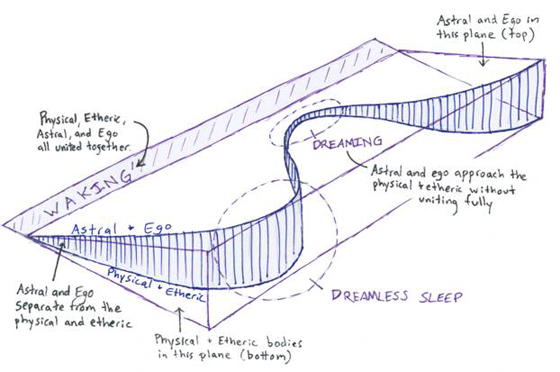 Astral and Ego in
this plane (top)
Physical, Etheric,
Astral, and Ego
all united together.
WAKING
DREAMING
Astral and ego approach the
physical + etheric without
uniting fully
Astral + Ego
Physical + Etheric
Astral and Ego
separate from the
physical and etheric
DREAMLESS SLEEP
Physical + Etheric bodies
in this plane (bottom)